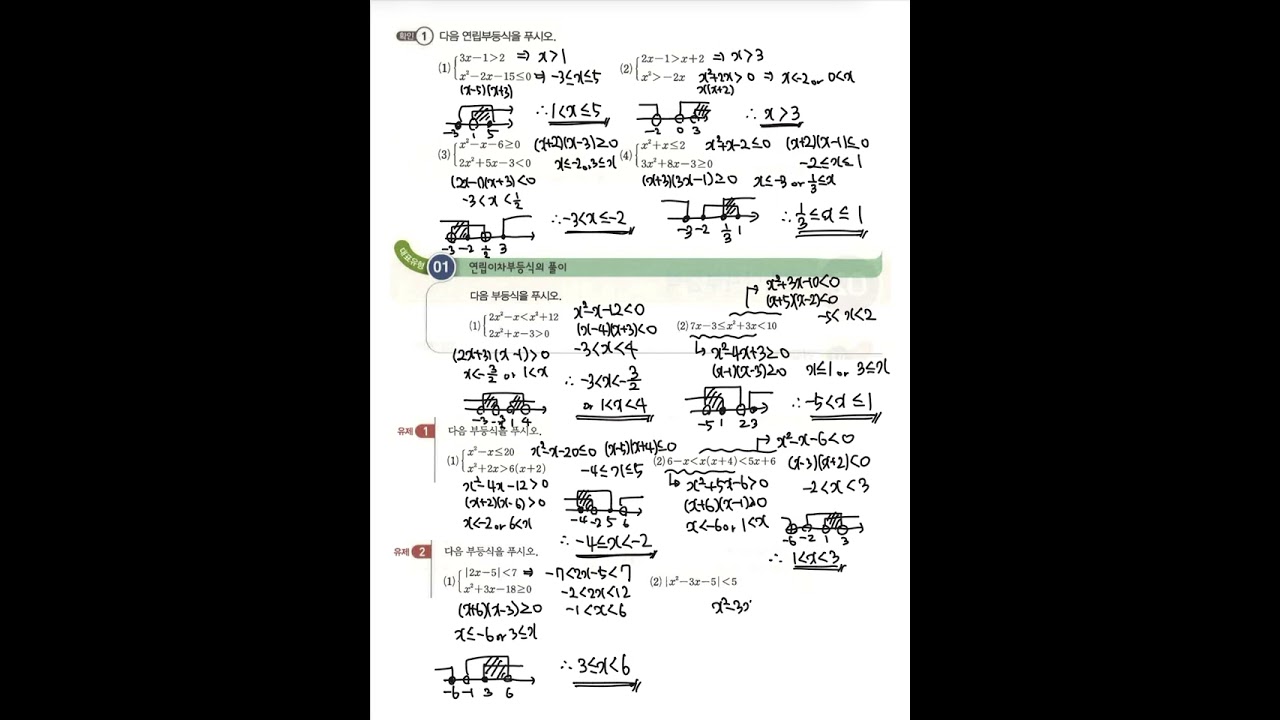 확인 1 다음 연립부등식을 푸시오.
(1) { 3x-1>2 ⇒ x>1
x²-2x-15≤0 ⇒ -3≤x≤5
(x-5)(x+3)
-3 1 5
∴ 1<x≤5
(2) { 2x-1>x+2 ⇒ x>3
x²>-2x x²+2x>0 ⇒ x<-2 or 0<x
x(x+2)
-2 0 3
∴ x>3
(3) { x²-x-6≥0 (x+2)(x-3)≥0
2x²+5x-3<0 x≤-2 or 3≤x
(2x-1)(x+3)<0
-3<x<1/2
-3 -2 1/2 3
∴ -3<x≤-2
(4) { x²+x≤2 x²+x-2≤0 (x+2)(x-1)≤0
3x²+8x-3≥0 -2≤x≤1
(x+3)(3x-1)≥0 x≤-3 or 1/3≤x
-3 -2 1/3 1
∴ 1/3≤x≤1
대표유형 01 연립이차부등식의 풀이
다음 부등식을 푸시오.
(1) { 2x²-x<x²+12 x²-x-12<0
2x²+x-3>0 (x-4)(x+3)<0
-3<x<4
(2x+3)(x-1)>0
x<-3/2 or 1<x
-3 -3/2 1 4
∴ -3<x<-3/2
or 1<x<4
(2) 7x-3≤x²+3x<10
x²+3x-10<0
(x+5)(x-2)<0
-5<x<2
x²-4x+3≥0
(x-1)(x-3)≥0 x≤1 or 3≤x
-5 1 2 3
∴ -5<x≤1
유제 1 다음 부등식을 푸시오.
(1) { x²-x≤20 x²-x-20≤0 (x-5)(x+4)≤0
x²+2x>6(x+2) -4≤x≤5
x²-4x-12>0
(x+2)(x-6)>0
x<-2 or 6<x
-4 -2 5 6
∴ -4≤x<-2
(2) 6-x<x(x+4)<5x+6
x²-x-6<0
(x-3)(x+2)<0
-2<x<3
x²+5x-6>0
(x+6)(x-1)>0
x<-6 or 1<x
-6 -2 1 3
∴ 1<x<3
유제 2 다음 부등식을 푸시오.
(1) { |2x-5|<7 ⇒ -7<2x-5<7
x²+3x-18≥0 -2<2x<12
(x+6)(x-3)≥0 -1<x<6
x≤-6 or 3≤x
-6 -1 3 6
∴ 3≤x<6
(2) |x²-3x-5|<5
x²-3x